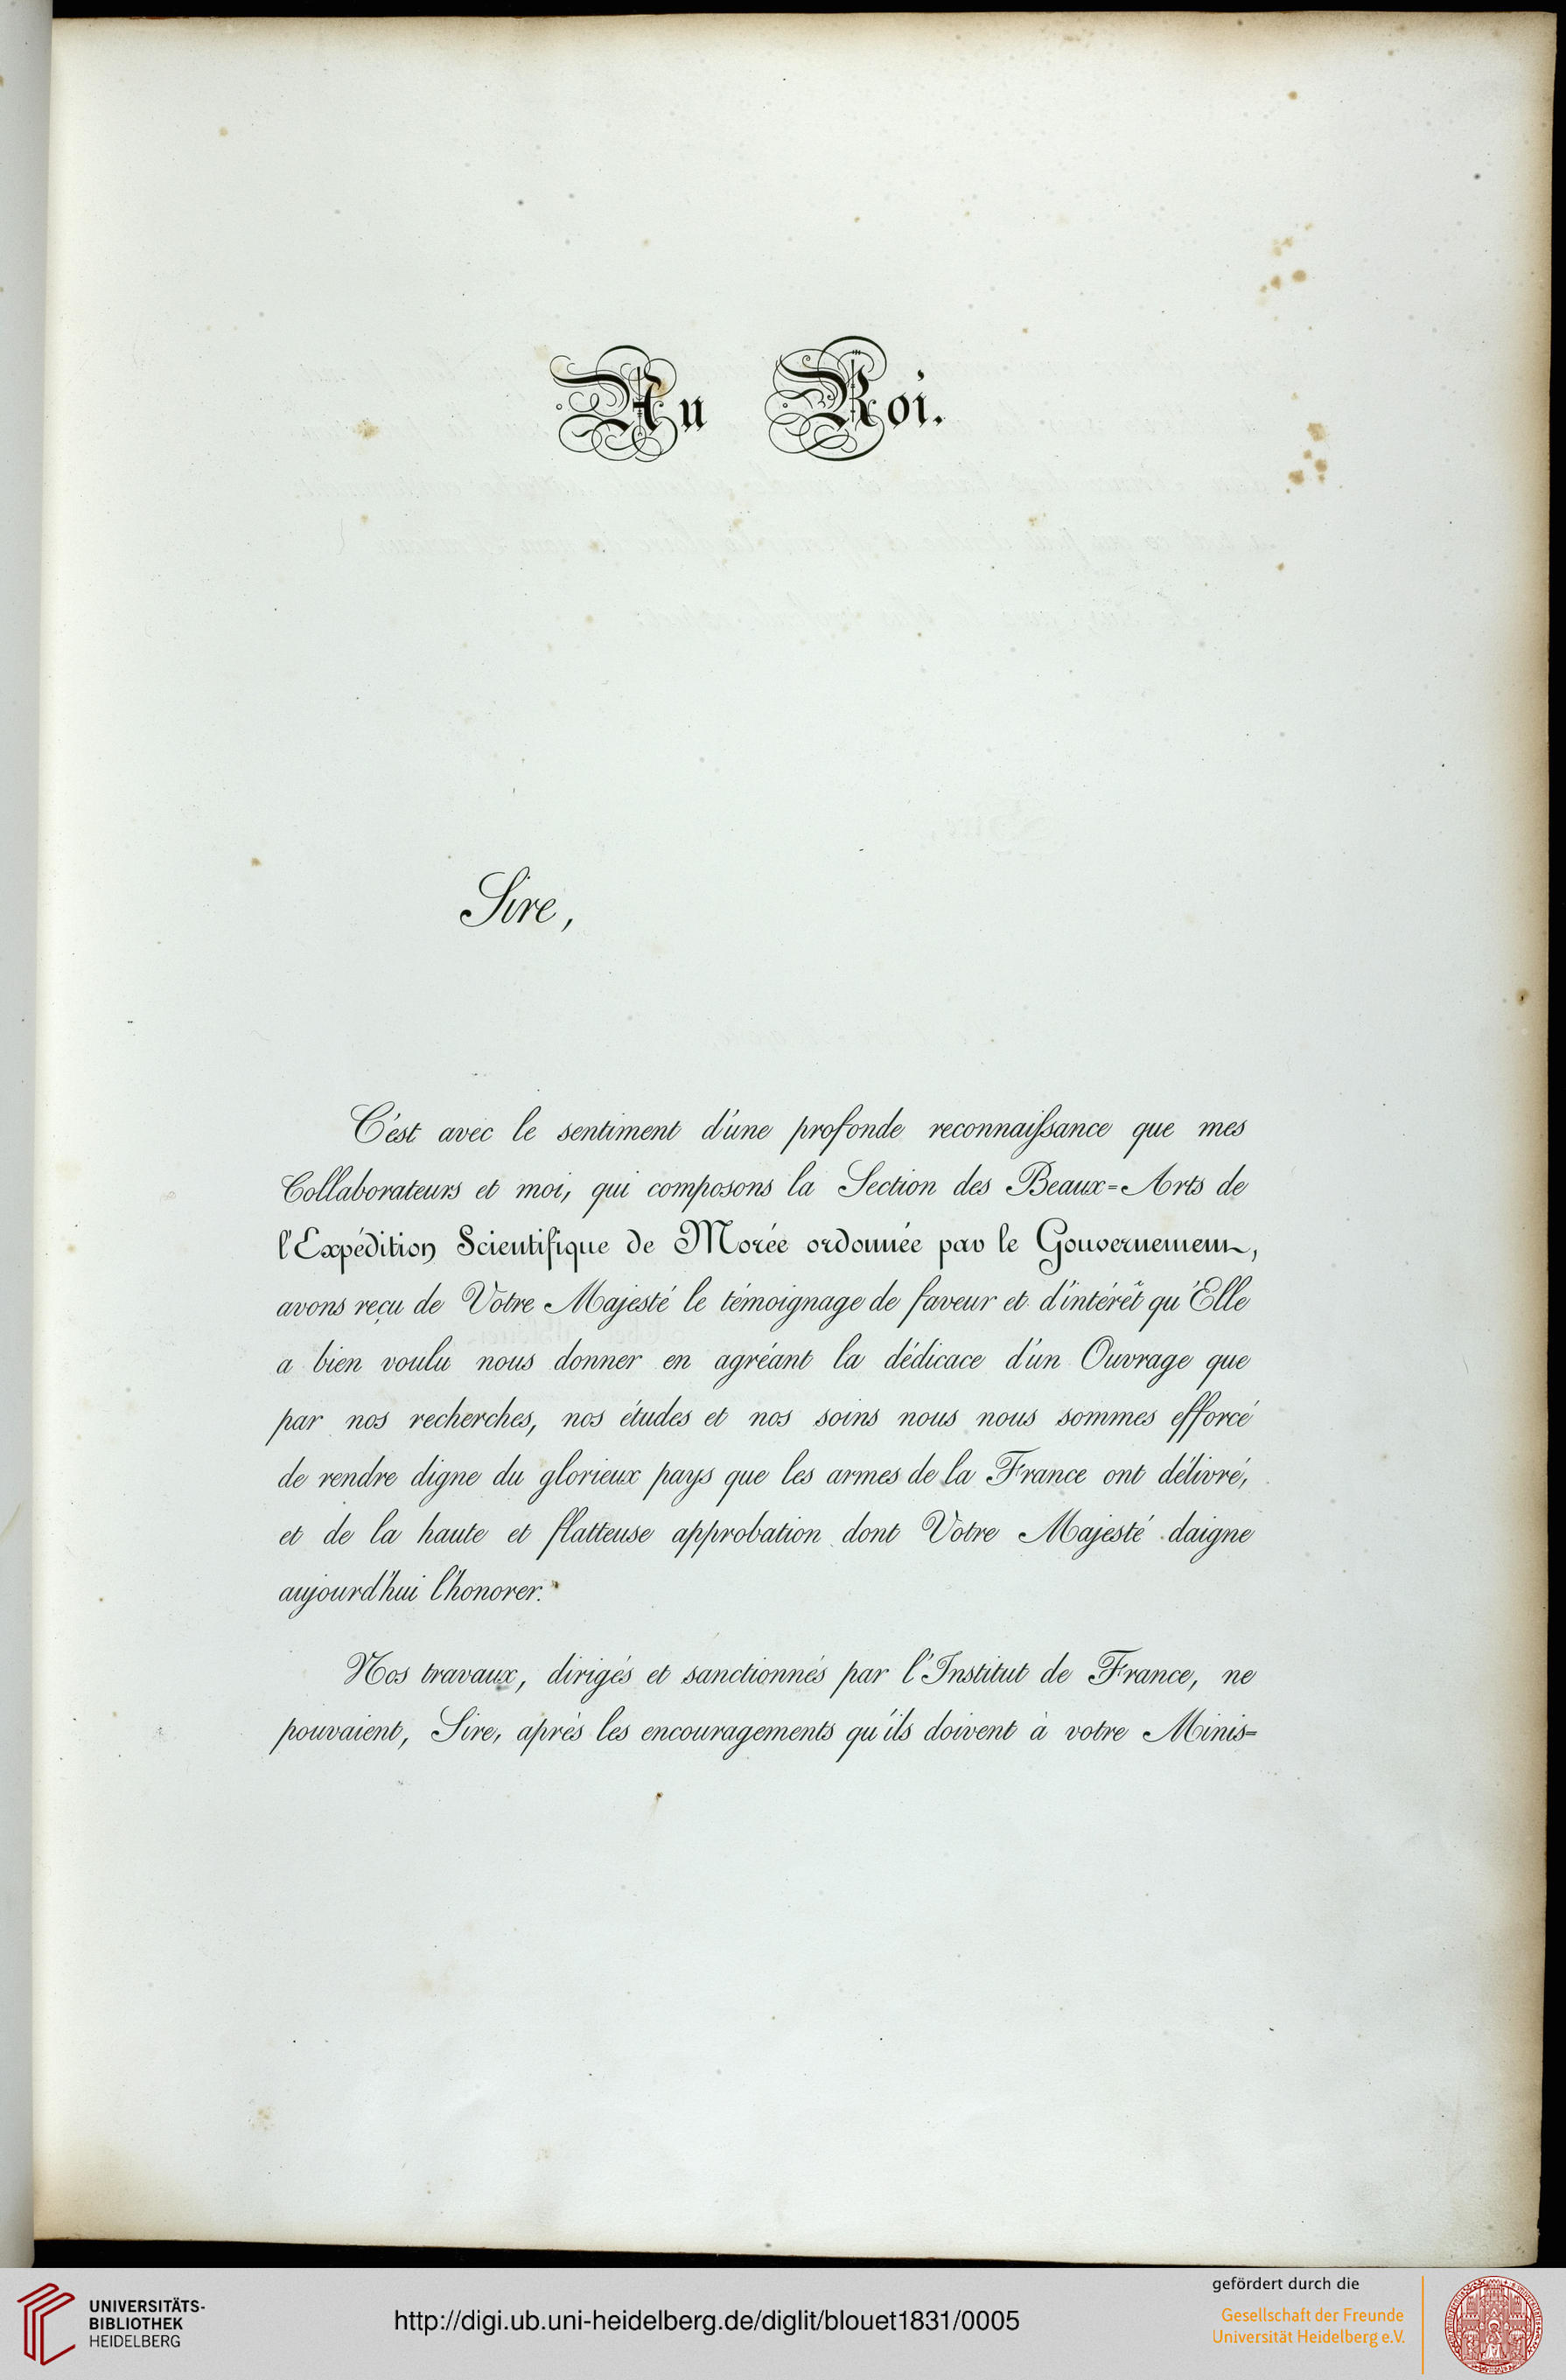 Au Roi.
Sire,
C'est avec le sentiment d'une profonde reconnaiſsance que mes
Collaborateurs et moi, qui composons la Section des Beaux=Arts de
l'Expédition Scientifique de Morée ordonnée par le Gouvernement,
avons reçu de Votre Majesté le témoignage de faveur et d'intérêt qu'Elle
a bien voulu nous donner en agréant la dédicace d'un Ouvrage que
par nos recherches, nos études et nos soins nous nous sommes efforcé
de rendre digne du glorieux pays que les armes de la France ont délivré,
et de la haute et flatteuse approbation dont Votre Majesté daigne
aujourd'hui l'honorer.
Nos travaux, dirigés et sanctionnés par l'Institut de France, ne
pouvaient, Sire, après les encouragements qu'ils doivent à votre Minis=
UNIVERSITÄTS-
BIBLIOTHEK
HEIDELBERG
http://digi.ub.uni-heidelberg.de/diglit/blouet1831/0005
gefördert durch die
Gesellschaft der Freunde
Universität Heidelberg e.V.